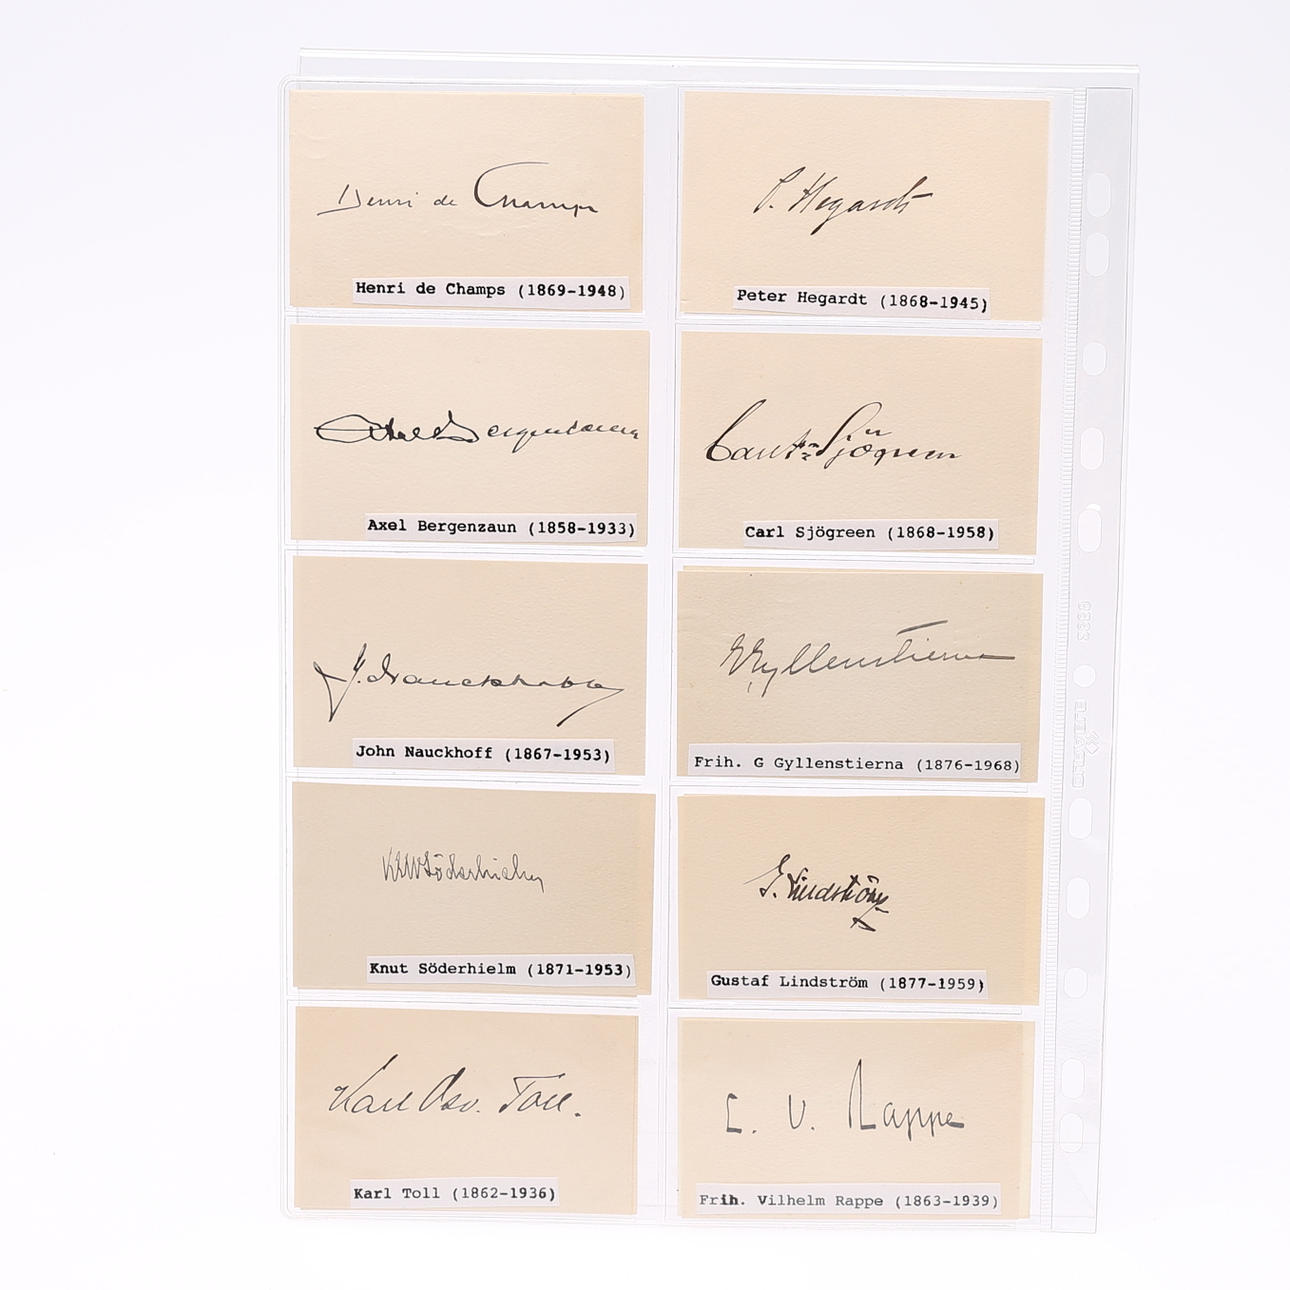 Henri de Champs
Henri de Champs (1869-1948)
P. Hegardt
Peter Hegardt (1868-1945)
Axel Bergenzaun
Axel Bergenzaun (1858-1933)
Sjögreen
Carl Sjögreen (1868-1958)
J. Nauckhoff
John Nauckhoff (1867-1953)
GGyllenstierna
Frih. G Gyllenstierna (1876-1968)
Söderhielm
Knut Söderhielm (1871-1953)
G. Lindström
Gustaf Lindström (1877-1959)
Karl Osv. Toll.
Karl Toll (1862-1936)
L. V. Rappe
Frih. Vilhelm Rappe (1863-1939)